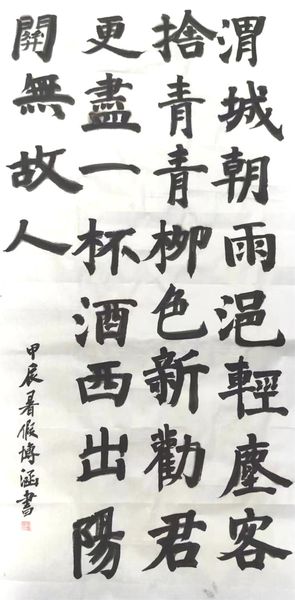 渭城朝雨浥輕塵客
捨青青柳色新勸君
更盡一杯酒西出陽
關無故人
甲辰暑假博涵書